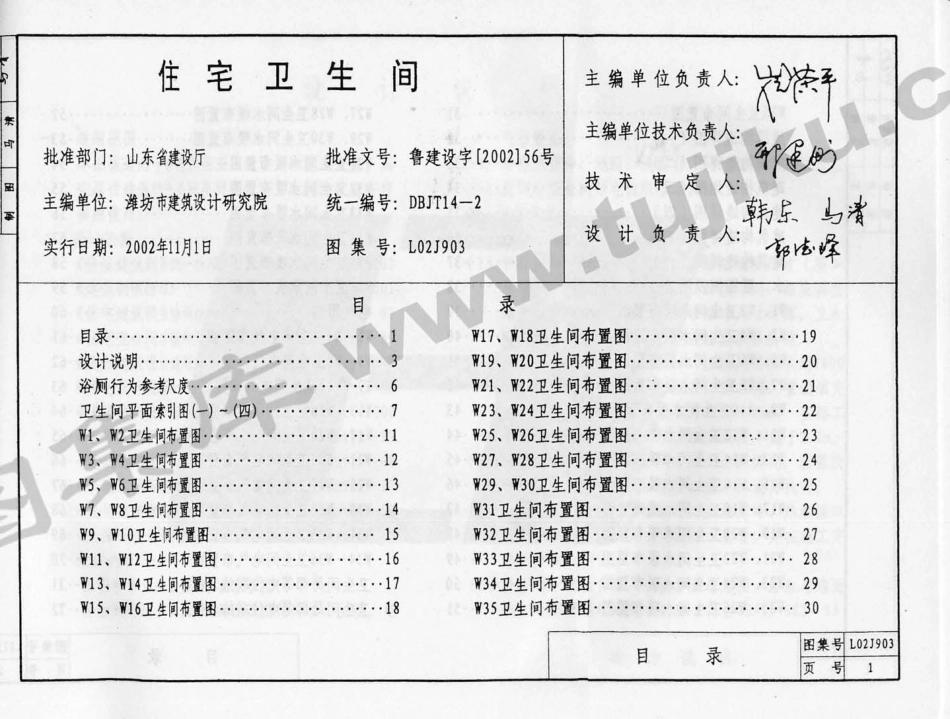 住宅卫生间
批准部门：山东省建设厅 批准文号：鲁建设字[2002]56号
主编单位：潍坊市建筑设计研究院 统一编号：DBJT14—2
实行日期：2002年11月1日 图集号：L02J903
主编单位负责人：
主编单位技术负责人：
技术审定人：韩东 马清
设计负责人：
目录
目录 1
设计说明 3
浴厕行为参考尺度 6
卫生间平面索引图(一)~(四) 7
W1、W2卫生间布置图 11
W3、W4卫生间布置图 12
W5、W6卫生间布置图 13
W7、W8卫生间布置图 14
W9、W10卫生间布置图 15
W11、W12卫生间布置图 16
W13、W14卫生间布置图 17
W15、W16卫生间布置图 18
W17、W18卫生间布置图 19
W19、W20卫生间布置图 20
W21、W22卫生间布置图 21
W23、W24卫生间布置图 22
W25、W26卫生间布置图 23
W27、W28卫生间布置图 24
W29、W30卫生间布置图 25
W31卫生间布置图 26
W32卫生间布置图 27
W33卫生间布置图 28
W34卫生间布置图 29
W35卫生间布置图 30
目录
图集号 L02J903
页号 1
图集库 www.tujiku.c